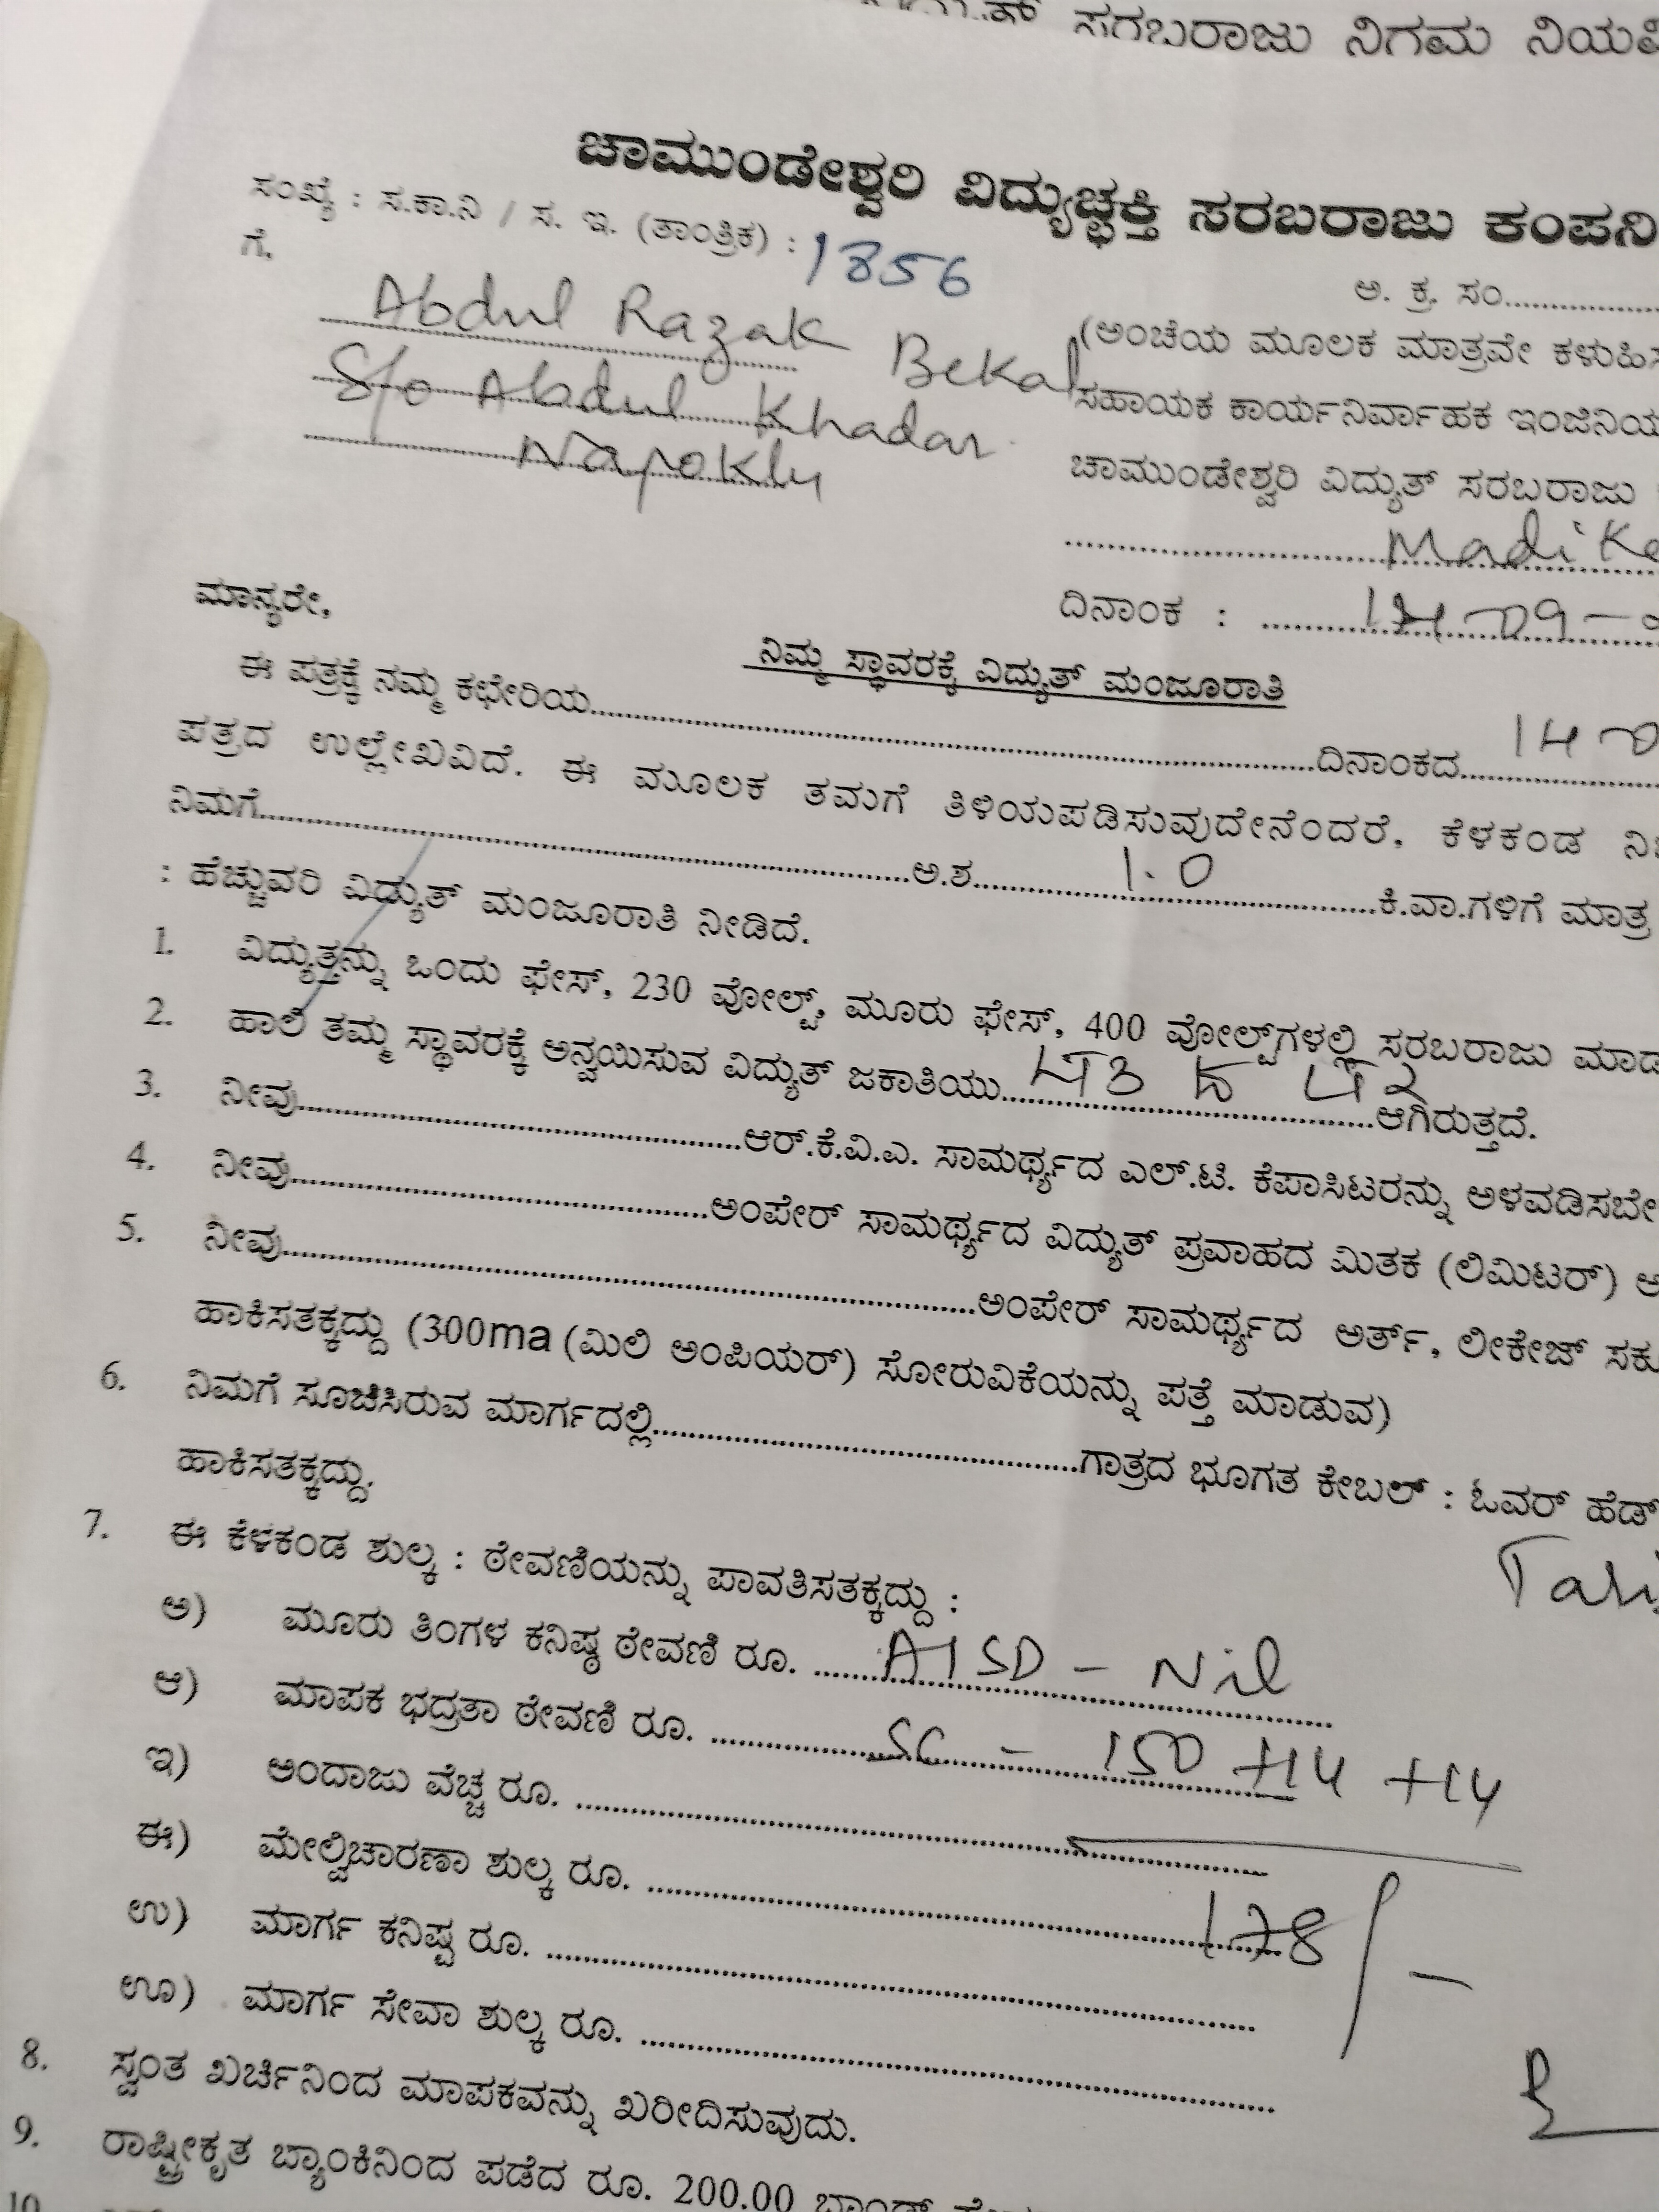 ಸರಬರಾಜು ನಿಗಮ
ಚಾಮುಂಡೇಶ್ವರಿ ವಿದ್ಯುಚ್ಛಕ್ತಿ ಸರಬರಾಜು ಕಂಪನಿ
ಸಂಖ್ಯೆ : ಸ.ಕಾ.ನಿ / ಸ. ಇ. (ತಾಂತ್ರಿಕ) : 1856
ಗೆ,
ಅ. ಕ್ರ. ಸಂ..............
Abdul Razak Bekal
S/o Abdul Khadar
Napoklu
(ಅಂಚೆಯ ಮೂಲಕ ಮಾತ್ರವೇ
ಸಹಾಯಕ ಕಾರ್ಯನಿರ್ವಾಹಕ
ಚಾಮುಂಡೇಶ್ವರಿ ವಿದ್ಯುತ್ ಸರಬರಾಜು
ದಿನಾಂಕ : 14-09-
ಮಾನ್ಯರೇ,
ನಿಮ್ಮ ಸ್ಥಾವರಕ್ಕೆ ವಿದ್ಯುತ್ ಮಂಜೂರಾತಿ
ಈ ಪತ್ರಕ್ಕೆ ನಮ್ಮ ಕಛೇರಿಯ..............ದಿನಾಂಕದ.......... 14-0
ಪತ್ರದ ಉಲ್ಲೇಖವಿದೆ. ಈ ಮೂಲಕ ತಮಗೆ ತಿಳಿಯಪಡಿಸುವುದೇನೆಂದರೆ, ಕೆಳಕಂಡ
ನಿಮಗೆ..............ಅ.ಶ.......... 1.0 ..........ಕಿ.ವಾ.ಗಳಿಗೆ ಮಾತ್ರ
: ಹೆಚ್ಚುವರಿ ವಿದ್ಯುತ್ ಮಂಜೂರಾತಿ ನೀಡಿದೆ.
1. ವಿದ್ಯುತ್ತನ್ನು ಒಂದು ಫೇಸ್, 230 ವೋಲ್ಟ್, ಮೂರು ಫೇಸ್, 400 ವೋಲ್ಟ್‌ಗಳಲ್ಲಿ ಸರಬರಾಜು
2. ಹಾಲಿ ತಮ್ಮ ಸ್ಥಾವರಕ್ಕೆ ಅನ್ವಯಿಸುವ ವಿದ್ಯುತ್ ಜಕಾತಿಯು..... LT3 to LT2 .....ಆಗಿರುತ್ತದೆ.
3. ನೀವು..............ಆರ್.ಕೆ.ವಿ.ಎ. ಸಾಮರ್ಥ್ಯದ ಎಲ್.ಟಿ. ಕೆಪಾಸಿಟರನ್ನು
4. ನೀವು..............ಅಂಪೇರ್ ಸಾಮರ್ಥ್ಯದ ವಿದ್ಯುತ್ ಪ್ರವಾಹದ ಮಿತಕ (ಲಿಮಿಟರ್)
5. ನೀವು..............ಅಂಪೇರ್ ಸಾಮರ್ಥ್ಯದ ಅರ್ತ್, ಲೀಕೇಜ್
ಹಾಕಿಸತಕ್ಕದ್ದು (300ma (ಮಿಲಿ ಅಂಪಿಯರ್) ಸೋರುವಿಕೆಯನ್ನು ಪತ್ತೆ ಮಾಡುವ)
6. ನಿಮಗೆ ಸೂಚಿಸಿರುವ ಮಾರ್ಗದಲ್ಲಿ..............ಗಾತ್ರದ ಭೂಗತ ಕೇಬಲ್ : ಓವರ್ ಹೆಡ್
ಹಾಕಿಸತಕ್ಕದ್ದು.
7. ಈ ಕೆಳಕಂಡ ಶುಲ್ಕ : ಠೇವಣಿಯನ್ನು ಪಾವತಿಸತಕ್ಕದ್ದು :
ಅ) ಮೂರು ತಿಂಗಳ ಕನಿಷ್ಠ ಠೇವಣಿ ರೂ. ....... AISD - Nil
ಆ) ಮಾಪಕ ಭದ್ರತಾ ಠೇವಣಿ ರೂ. ....... SC - 150 +14 +14
ಇ) ಅಂದಾಜು ವೆಚ್ಚ ರೂ. ..............
ಈ) ಮೇಲ್ವಿಚಾರಣಾ ಶುಲ್ಕ ರೂ. ....... 178/-
ಉ) ಮಾರ್ಗ ಕನಿಷ್ಟ ರೂ. ..............
ಊ) ಮಾರ್ಗ ಸೇವಾ ಶುಲ್ಕ ರೂ. ..............
8. ಸ್ವಂತ ಖರ್ಚಿನಿಂದ ಮಾಪಕವನ್ನು ಖರೀದಿಸುವುದು.
9. ರಾಷ್ಟ್ರೀಕೃತ ಬ್ಯಾಂಕಿನಿಂದ ಪಡೆದ ರೂ. 200.00
10.